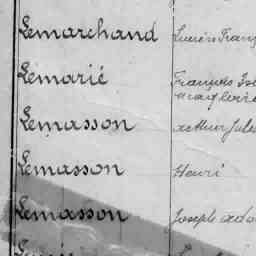 Lemarchand Lucien Franç
Lemarié François
Lemasson Arthur Jules
Lemasson Henri
Lemasson Joseph